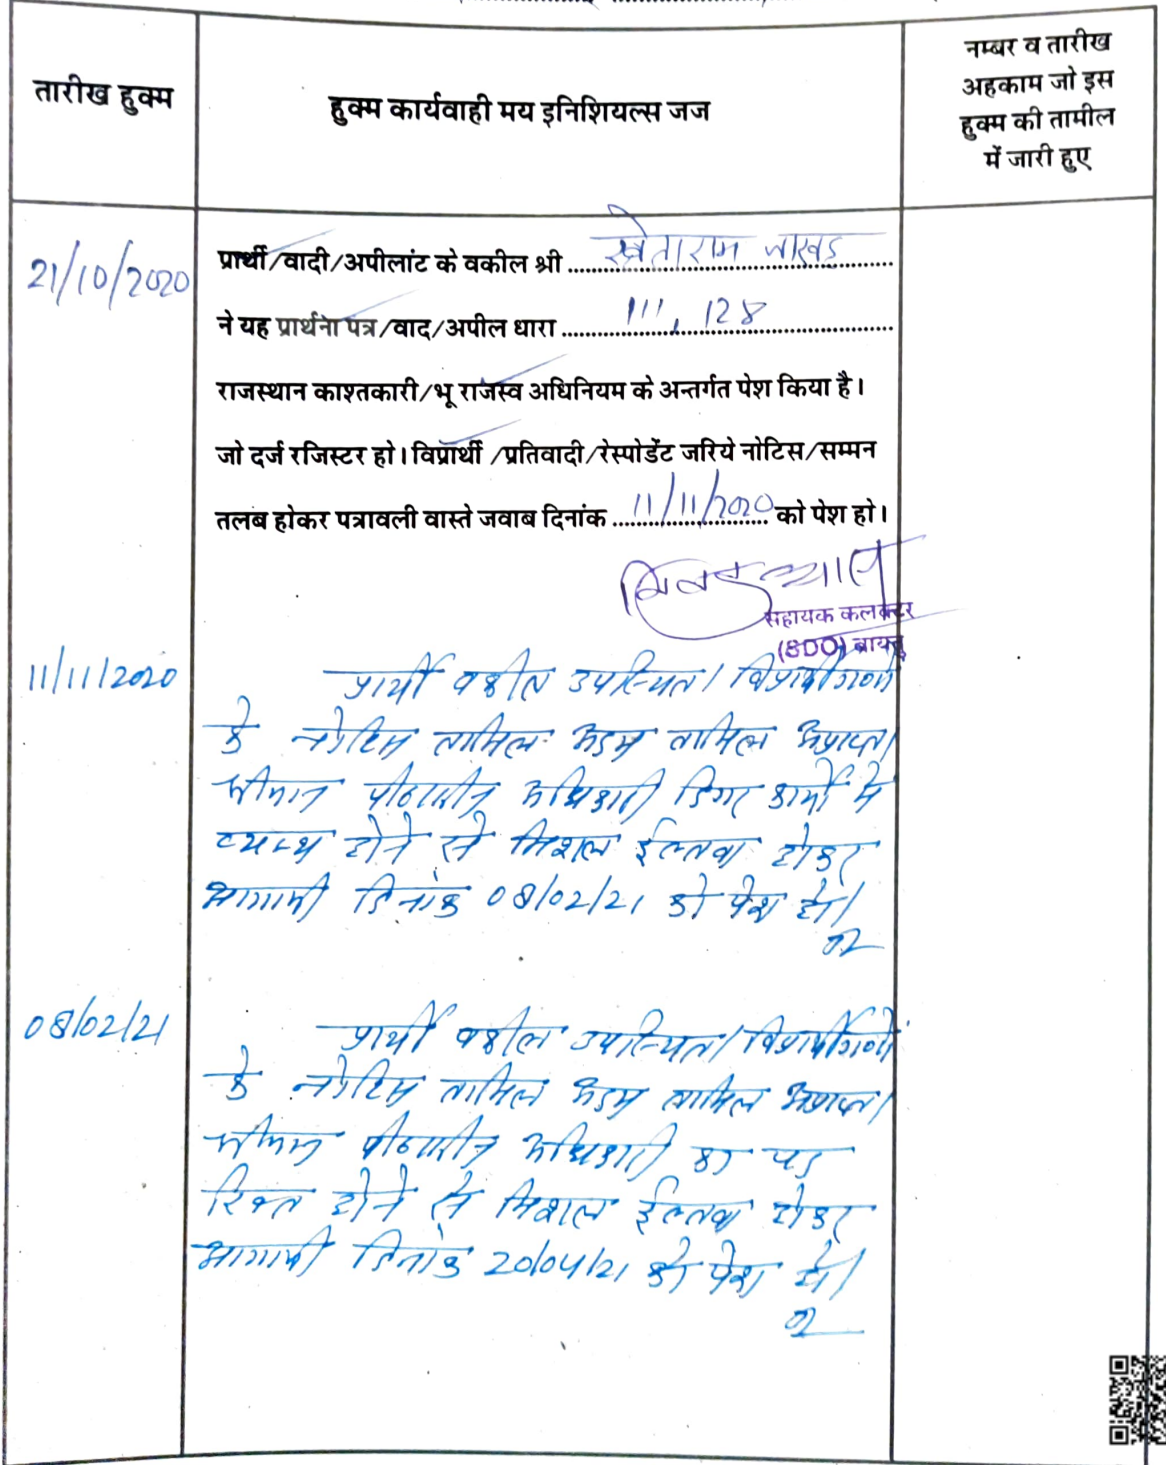 तारीख हुक्म
हुक्म कार्यवाही मय इनिशियल्स जज
नम्बर व तारीख
अहकाम जो इस
हुक्म की तामील
में जारी हुए
21/10/2020
प्रार्थी/वादी/अपीलांट के वकील श्री खेताराम जाखड
ने यह प्रार्थना पत्र/वाद/अपील धारा 111, 128
राजस्थान काश्तकारी/भू राजस्व अधिनियम के अन्तर्गत पेश किया है।
जो दर्ज रजिस्टर हो। विप्रार्थी /प्रतिवादी/रेस्पोडेंट जरिये नोटिस/सम्मन
तलब होकर पत्रावली वास्ते जवाब दिनांक 11/11/2020 को पेश हो।
सहायक कलक्टर
(SDO) बायतु
11/11/2020
प्रार्थी वकील उपस्थित। विप्रार्थीगणों
के नोटिस तामिल अदम तामिल अप्राप्त।
श्रीमान पीठासीन अधिकारी दिगर कार्यो मे
व्यस्थ होने से मिशल ईल्तवा होकर
आगामी दिनांक 08/02/21 को पेश हो।
08/02/21
प्रार्थी वकील उपस्थित। विप्रार्थीगणों
के नोटिस तामिल अदम तामिल अप्राप्त।
श्रीमान पीठासीन अधिकारी का पद
रिक्त होने से मिशल ईल्तवा होकर
आगामी दिनांक 20/04/21 को पेश हो।